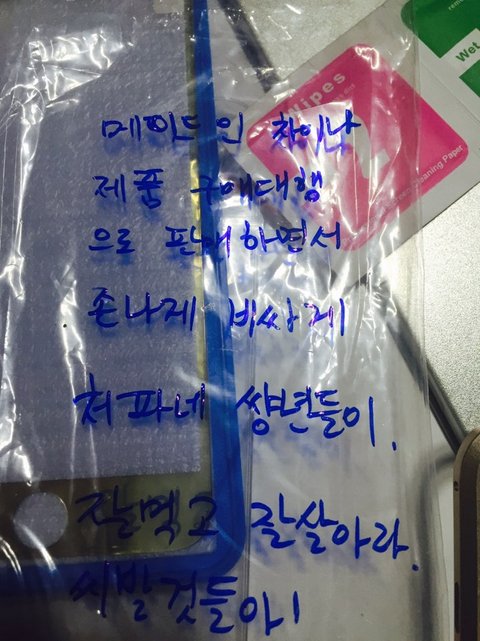 메이드인 차이나
제품 구매대행
으로 판매하면서
존나게 비싸게
쳐파네 썅년들이.
잘먹고 잘살아라.
씨발것들아!
Wipes
Wet
Cleaning Paper